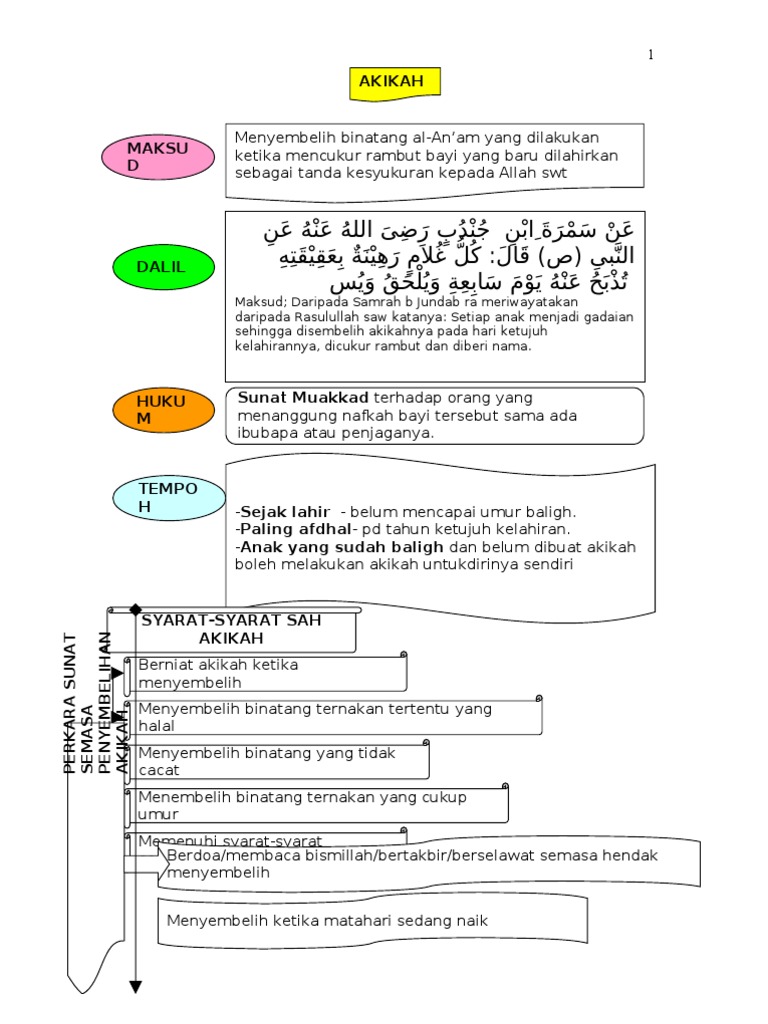 1
AKIKAH
MAKSU
D
Menyembelih binatang al-An’am yang dilakukan
ketika mencukur rambut bayi yang baru dilahirkan
sebagai tanda kesyukuran kepada Allah swt
DALIL
عَنْ سَمْرَةَ ِابْنِ جُنْدُبٍ رَضِىَ اللهُ عَنْهُ عَنِ
النَّبيِ (ص) قَالَ: كُلُّ غُلاَمٍ رَهِيْنَةٌ بِعَقِيْقَتِهِ
تُذْبَحُ عَنْهُ يَوْمَ سَابِعِةِ وَيُلْحَقُ وَيُس
Maksud; Daripada Samrah b Jundab ra meriwayatakan
daripada Rasulullah saw katanya: Setiap anak menjadi gadaian
sehingga disembelih akikahnya pada hari ketujuh
kelahirannya, dicukur rambut dan diberi nama.
HUKU
M
Sunat Muakkad terhadap orang yang
menanggung nafkah bayi tersebut sama ada
ibubapa atau penjaganya.
TEMPO
H
-Sejak lahir - belum mencapai umur baligh.
-Paling afdhal- pd tahun ketujuh kelahiran.
-Anak yang sudah baligh dan belum dibuat akikah
boleh melakukan akikah untukdirinya sendiri
SYARAT-SYARAT SAH
AKIKAH
Berniat akikah ketika
menyembelih
Menyembelih binatang ternakan tertentu yang
halal
Menyembelih binatang yang tidak
cacat
Menembelih binatang ternakan yang cukup
umur
Memenuhi syarat-syarat
PERKARA SUNAT
SEMASA
PENYEMBELIHAN
AKIKAH
Berdoa/membaca bismillah/bertakbir/berselawat semasa hendak
menyembelih
Menyembelih ketika matahari sedang naik